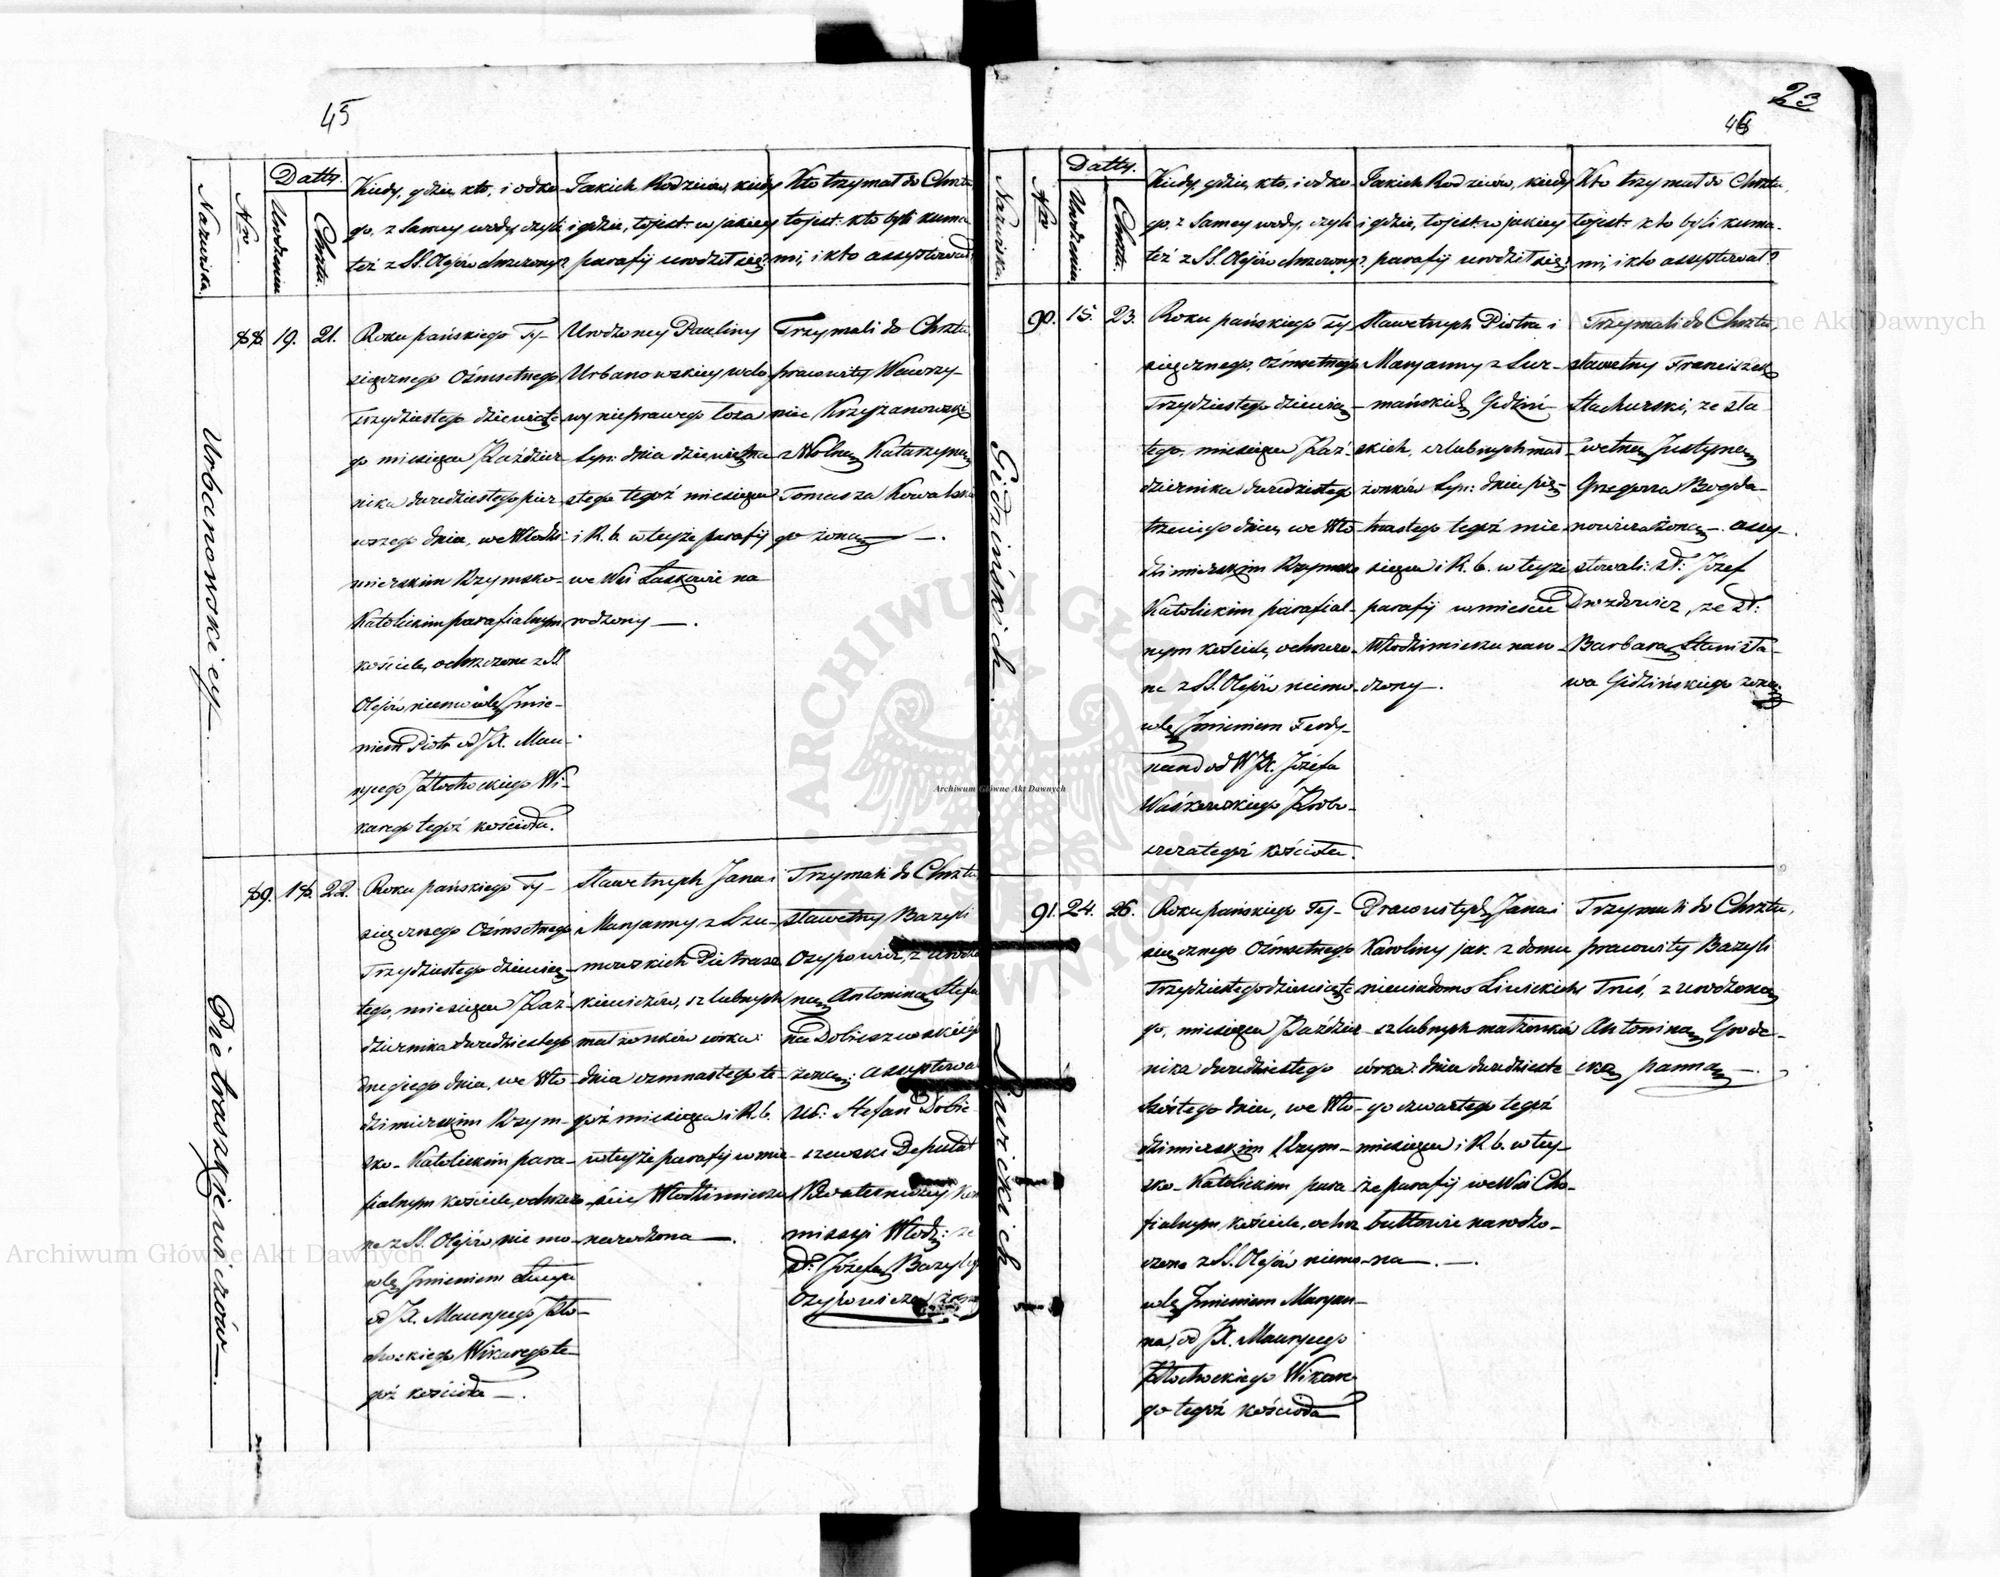 45
Datty.
Nazwiska.
Nro
Urodzenia
Chrztu.
Kiedy, gdzie, kto, i od ko-
go, z Samey wody, czyli
też z SS. Olejów chrzczony?
Jakich Rodziców, kiedy
i gdzie, to jest: w jakiey
parafij urodził się?
Kto trzymał do Chrztu,
to jest: kto byli kuma-
mi, i kto assystował?
Urbanowskiey.
88. 19. 21.
Roku pańskiego Ty-
siącznego Ośmsetnego
Trzydziestego dziewiąte-
go miesiąca Paździer-
nika dwudziestego pier-
wszego dnia, we Włodzi-
mierskim Rzymsko-
Katolickim parafialnym
kościele, ochrzczone z SS.
Olejów niemowlę Jmie-
niem Piotr od JX. Mau-
rycego Płochockiego Wi-
karego tegoż kościoła.
Urodzoney Pauliny
Urbanowskiey wdo-
wy nieprawego łoża
Syn: dnia dziewiętna-
stego tegoż miesiąca
i R. b. w teyże parafij
we Wsi Łaskowie na-
rodzony.
Trzymali do Chrztu,
pracowity Wawrzy-
niec Krzyżanowski
z Wolną Katarzyną
Tomasza Kowalskie
go żoną.
Pietraszkiewiczów.
89. 18. 22.
Roku pańskiego Ty-
siącznego Ośmsetnego
Trzydziestego dziewią-
tego, miesiąca Paź-
dziernika dwudziestego
drugiego dnia, we Wło-
dzimierskim Rzym-
sko-Katolickim para-
fialnym kościele, ochrzczo-
ne z SS. Olejów, niemo-
wlę Jmieniem Łucya
od JX. Maurycego Pło-
chockiego Wikarego te-
goż kościoła.
Sławetnych Jana i
Maryanny z Szu-
mowskich Pietrasz-
kiewiczów, szlubnych
małżonków córka:
dnia ośmnastego te-
goż miesiąca i R. b.
w teyże parafij w mie-
ście Włodzimierzu
narodzona.
Trzymali do Chrztu
sławetny Bazyli
Ozypowicz, z urodzo
ną Antoniną Stefa
na Dobieszewskiego
żoną: assystowa
Ur: Stefan Dobie
szewski Deputat
Kwaterniczey Kom
missyi Włodz: ze
st: Józefą Bazylego
Ozypowicza żoną
23
46
Datty.
Nazwiska.
Nro
Urodzenia
Chrztu.
Kiedy, gdzie, kto, i od ko-
go, z Samey wody, czyli
też z SS. Olejów chrzczony?
Jakich Rodziców, kiedy
i gdzie, to jest: w jakiey
parafij urodził się?
Kto trzymał do Chrztu,
to jest: kto byli kuma-
mi, i kto assystował?
Gidzińskich.
90. 15. 23.
Roku pańskiego Ty-
siącznego, Ośmsetnego
Trzydziestego dziewią-
tego, miesiąca Paź-
dziernika dwudziestego
trzeciego dnia, we Wło-
dzimierskim Rzymsko
Katolickim parafial-
nym kościele, ochrzczo-
ne z SS. Olejów niemo-
wlę Jmieniem Ferdy-
nand od WJX. Józefa
Waśkowskiego Probo-
szcza tegoż kościoła.
Sławetnych Piotra i
Maryanny z Szur-
mańskich Gidziń-
skich, szlubnych mał-
żonków Syn: dnia pię-
tnastego tegoż mie-
siąca i R. b. w teyże
parafij w mieście
Włodzimierzu naro-
dzony.
Trzymali do Chrztu,
sławetny Franciszek
Stachurski, ze sła-
wetną Justyną
Grzegorza Bogda-
nowicza żoną. assy-
stowali: st: Józef
Drozdowicz, ze st:
Barbarą Stanisła-
wa Gidzińskiego żoną.
Liwickich
91. 24. 26.
Roku pańskiego Ty-
siącznego Ośmsetnego
Trzydziestego dziewiąte-
go, miesiąca Paździer-
nika dwudziestego
szóstego dnia, we Wło-
dzimierskim Rzym-
sko-Katolickim para-
fialnym kościele, ochrz-
czone z SS. Olejów niemo-
wlę Jmieniem Maryan-
na, od JX. Maurycego
Płochockiego Wikare-
go tegoż kościoła
Pracowitych Jana i
Karoliny jak z domu
niewiadomo Liwickich
szlubnych małżonków
córka: dnia dwudzieste-
go czwartego tegoż
miesiąca i R. b. w tey-
że parafij we Wsi Cho-
bułtowie narodzo-
na.
Trzymali do Chrztu,
pracowity Bazyli
Truś, z urodzoną
Antoniną Grode-
cką panną.
Archiwum Główne Akt Dawnych
Archiwum Główne Akt Dawnych
Archiwum Główne Akt Dawnych